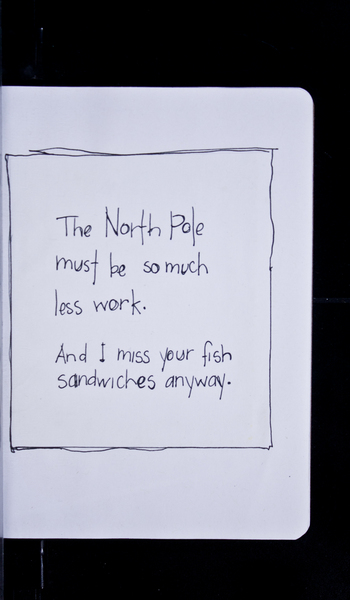 The North Pole
must be so much
less work.
And I miss your fish
sandwiches anyway.